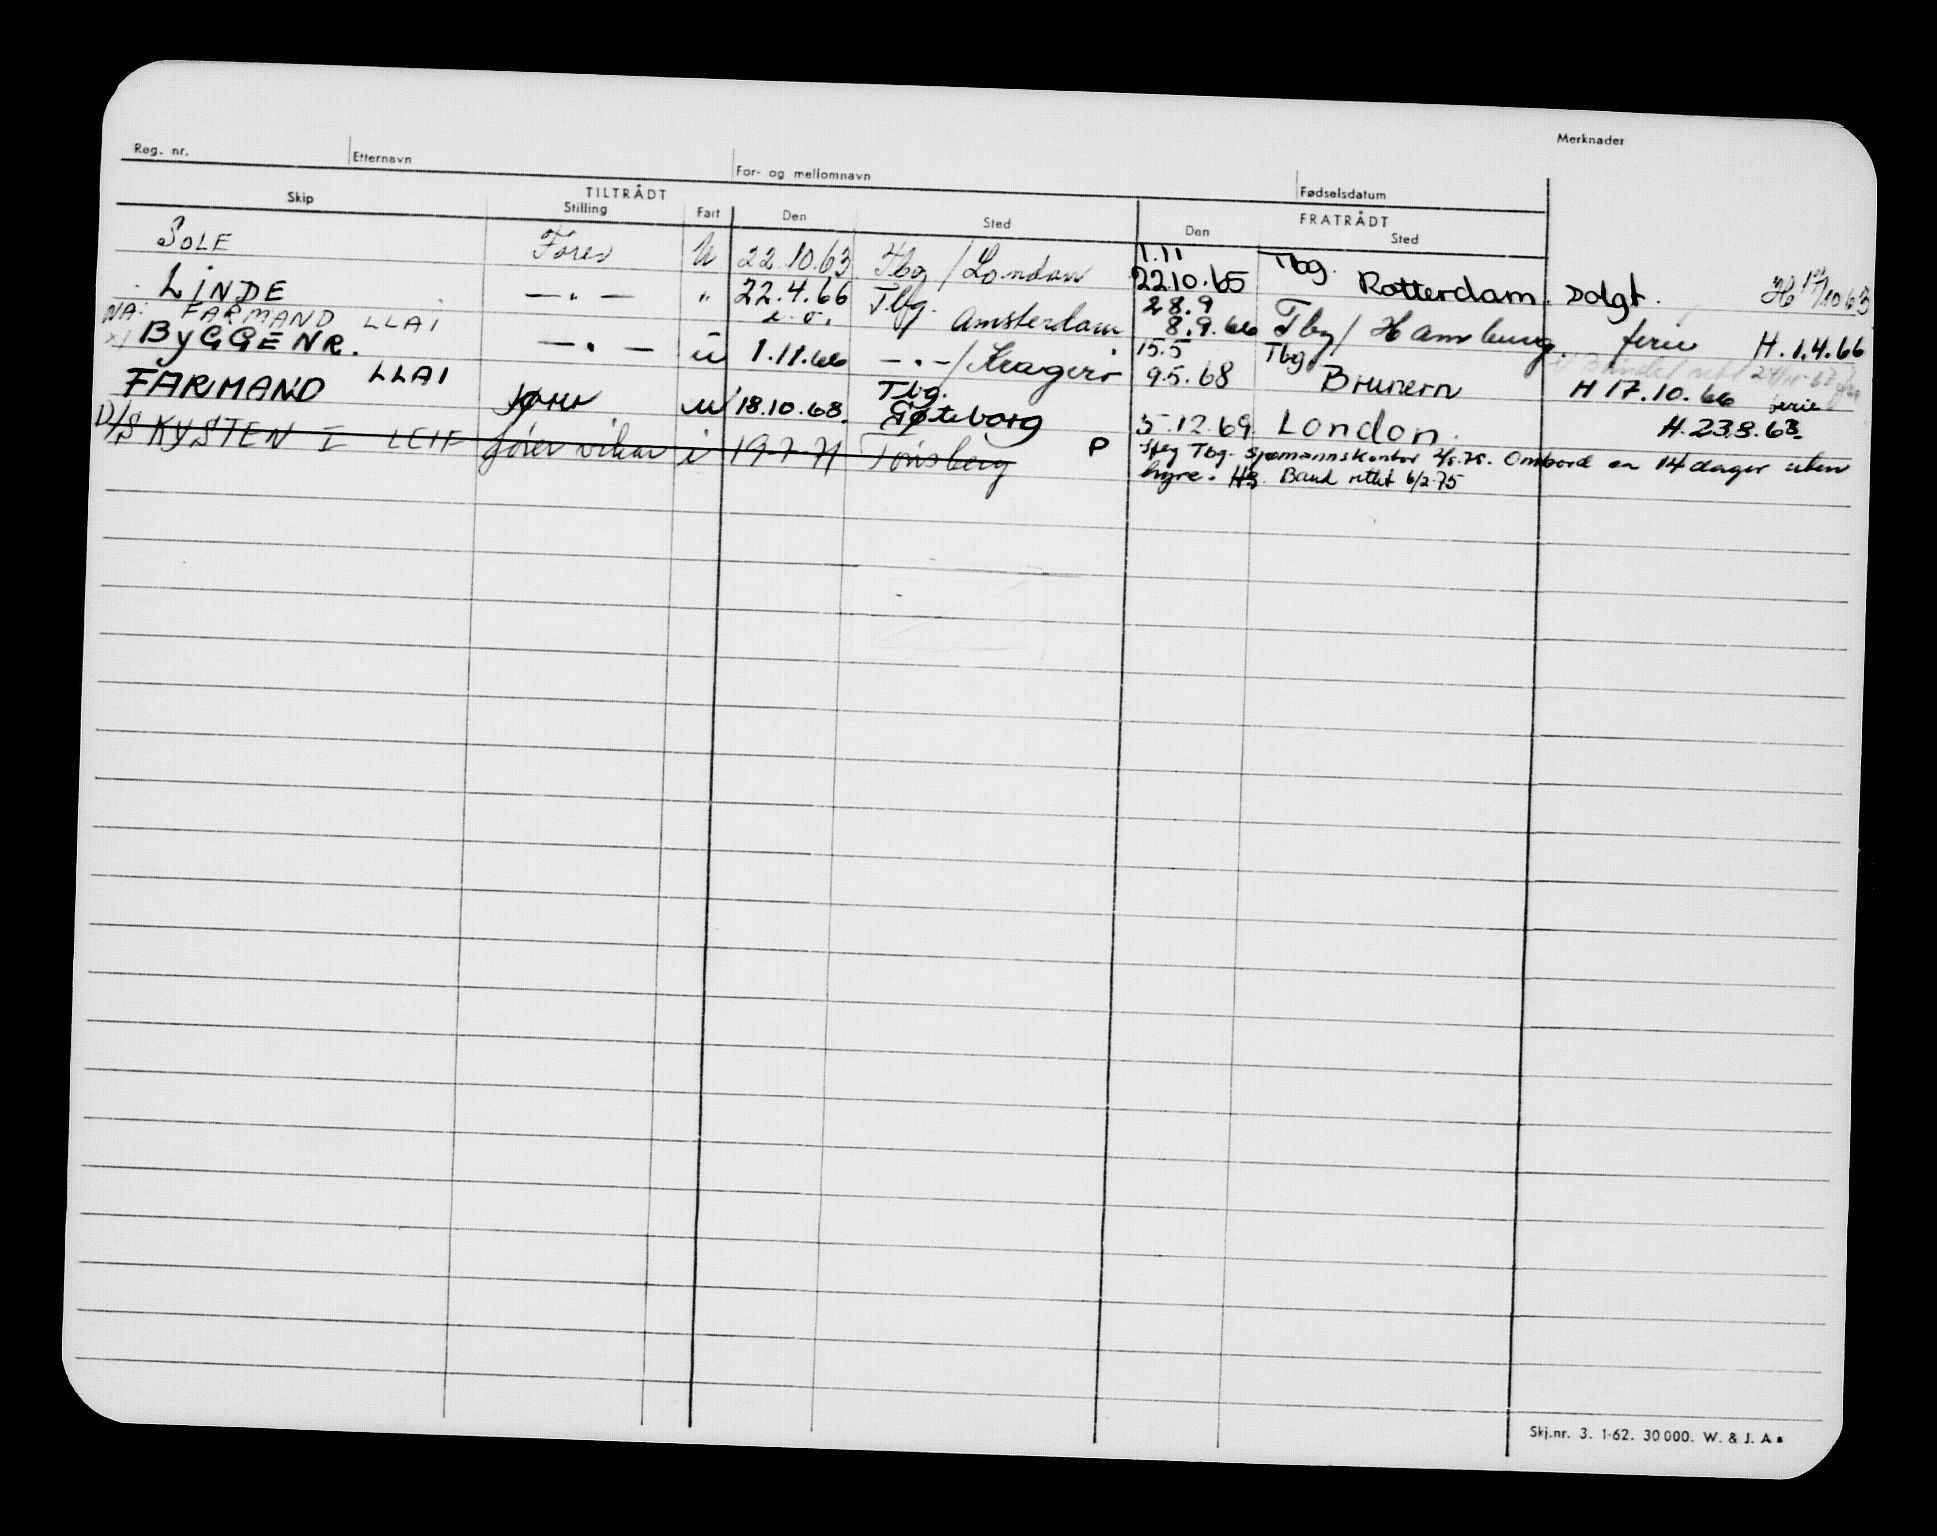 Merknader
Reg. nr. Etternavn For- og mellomnavn Fødselsdatum
TILTRÅDT FRATRÅDT
Skip Stilling Fart Den Sted Den Sted
SOLE Fører U 22.10.63 Tbg / London 1.11 22.10.65 Tbg. Rotterdam. Dolgt. 10 63
LINDE — " — " 22.4.66 Tbg. Amsterdam 28.9 8.9.66 Tbg / Hamburg. ferie H. 1.4.66
NA: FARMAND LLAI
BYGGENR. — " — u 1.11.66 — " — / Kragerø 15.5 9.5.68 Tbg Brunern H 17.10.66 ferie
FARMAND LLAI fører u 18.10.68. Tbg. Gøteborg 5.12.69 London. H. 23.8.63
D/S KYSTEN I LEIF fører vikar i 19-7-71 Tønsberg P Tbg. sjømannskontor Ombord en 14 dager uten
hyre. HB. Band rettet 6/2-75
Skj.nr. 3. 1-62. 30 000. W. & J. A s